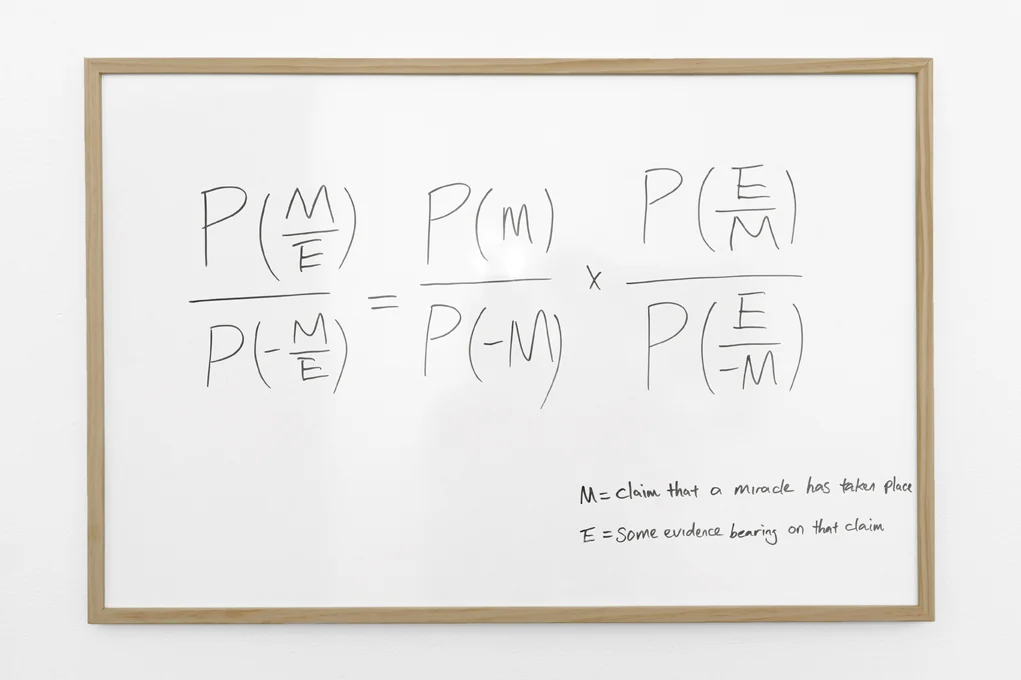 P(M/E) / P(-M/E) = P(m) / P(-M) x P(E/M) / P(E/-M)
M = claim that a miracle has taken place
E = Some evidence bearing on that claim